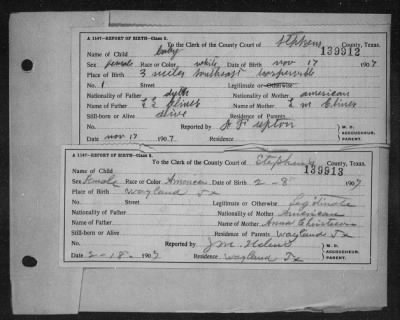 A 1547—REPORT OF BIRTH—Class 5.
To the Clerk of the County Court of Stephens County, Texas.
139912
Name of Child baby
Sex female Race or Color white Date of Birth nov 17 1907
Place of Birth 3 miles southeast
No. 1 Street Legitimate or Otherwise
Nationality of Father Nationality of Mother american
Name of Father Name of Mother L M
Still-born or Alive alive Residence of Parents
Reported by Upton M. D. ACCOUCHEUR, PARENT.
Date nov 17 1907 Residence
A 1547—REPORT OF BIRTH—Class 5.
To the Clerk of the County Court of Stephens County, Texas.
139913
Name of Child
Sex Female Race or Color America Date of Birth 2-8 1907
Place of Birth Wayland Tx
No. Street Legitimate or Otherwise Legitimate
Nationality of Father Nationality of Mother American
Name of Father Name of Mother Anna
Still-born or Alive Residence of Parents Wayland Tx
Reported by J M M. D. ACCOUCHEUR, PARENT.
Date 2-18 1907 Residence Wayland Tx